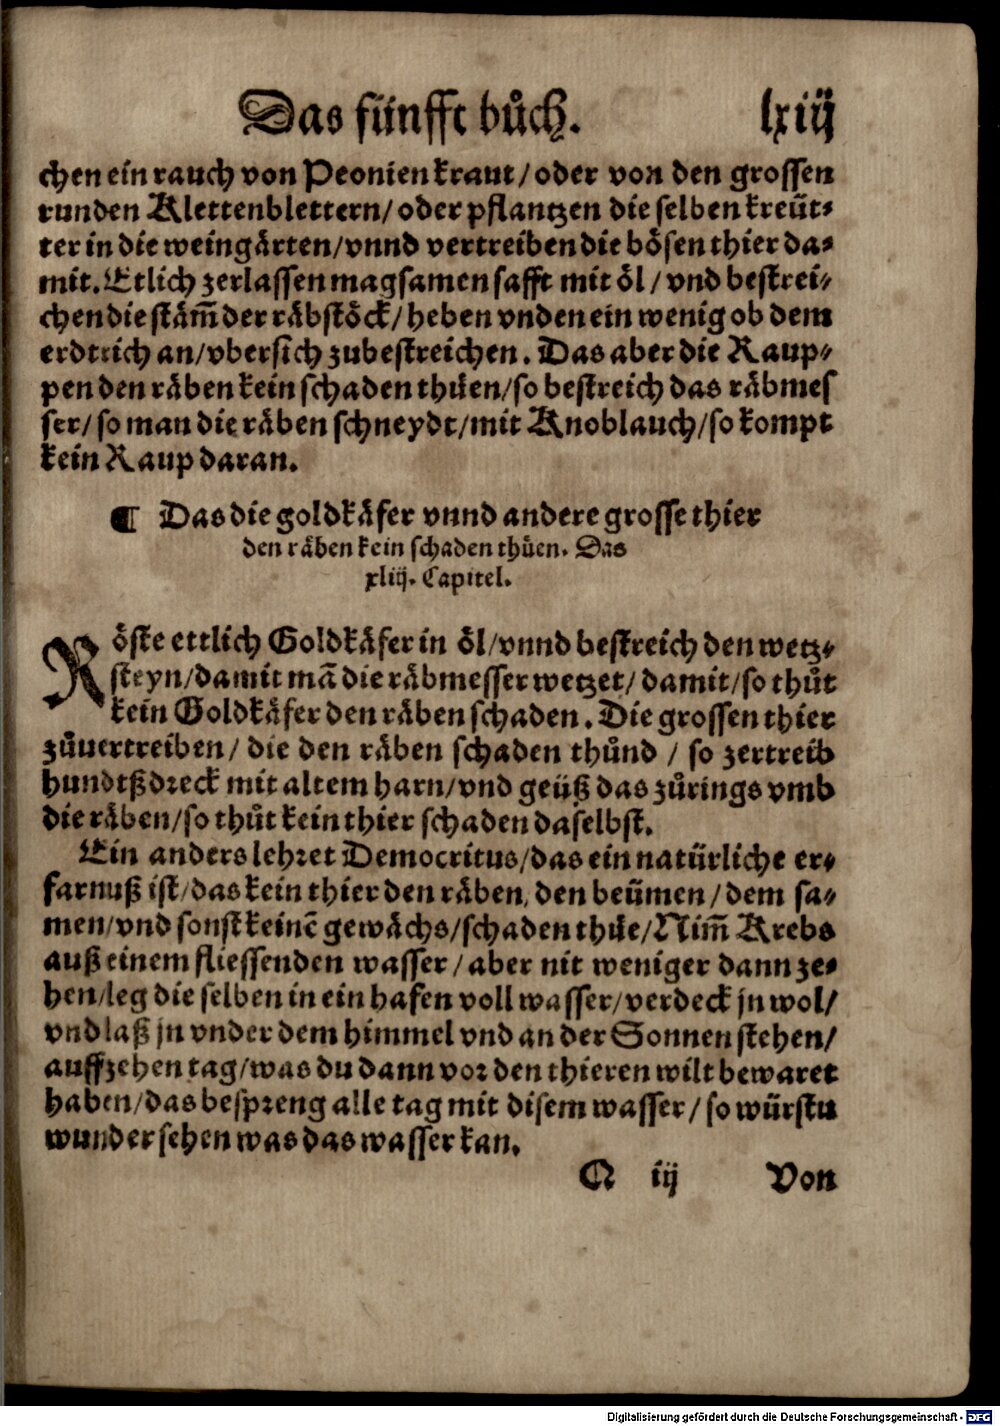 Das fünfft bůch. lxiij
chen ein rauch von Peonien kraut/ oder von den grossen
runden Klettenblettern/ oder pflantzen die selben kreüt⸗
ter in die weingärten/ vnnd vertreiben die bösen thier da⸗
mit. Etlich zerlassen magsamen safft mit öl/ vnd bestrei⸗
chen die stäm̃ der räbstöck/ heben vnden ein wenig ob dem
erdtrich an/ vbersich zubestreichen. Das aber die Raup⸗
pen den räben kein schaden thüen/ so bestreich das räbmes
ser/ so man die räben schneydt/ mit Knoblauch/ so kompt
kein Raup daran.
¶ Das die goldkäfer vnnd andere grosse thier
den räben kein schaden thüen. Das
xliij. Capitel.
Röste ettlich Goldkäfer in öl/ vnnd bestreich den wetz⸗
steyn/ damit mã die räbmesser wetzet/ damit/ so thůt
kein Goldkäfer den räben schaden. Die grossen thier
zůuertreiben/ die den räben schaden thůnd/ so zertreib
hundtßdreck mit altem harn/ vnd geüß das zůrings vmb
die räben/ so thůt kein thier schaden daselbst.
Ein anders lehret Democritus/ das ein natürliche er⸗
farnuß ist/ das kein thier den räben, den beümen/ dem sa⸗
men/ vnd sonst keinẽ gewächs/ schaden thüe/ Nim̃ Krebs
auß einem fliessenden wasser/ aber nit weniger dann ze⸗
hen/ leg die selben in ein hafen voll wasser/ verdeck jn wol/
vnd laß jn vnder dem himmel vnd an der Sonnen stehen/
auff zehen tag/ was du dann vor den thieren wilt bewaret
haben/ das bespreng alle tag mit disem wasser/ so würstu
wunder sehen was das wasser kan.
Q iij Von
Digitalisierung gefördert durch die Deutsche Forschungsgemeinschaft - DFG